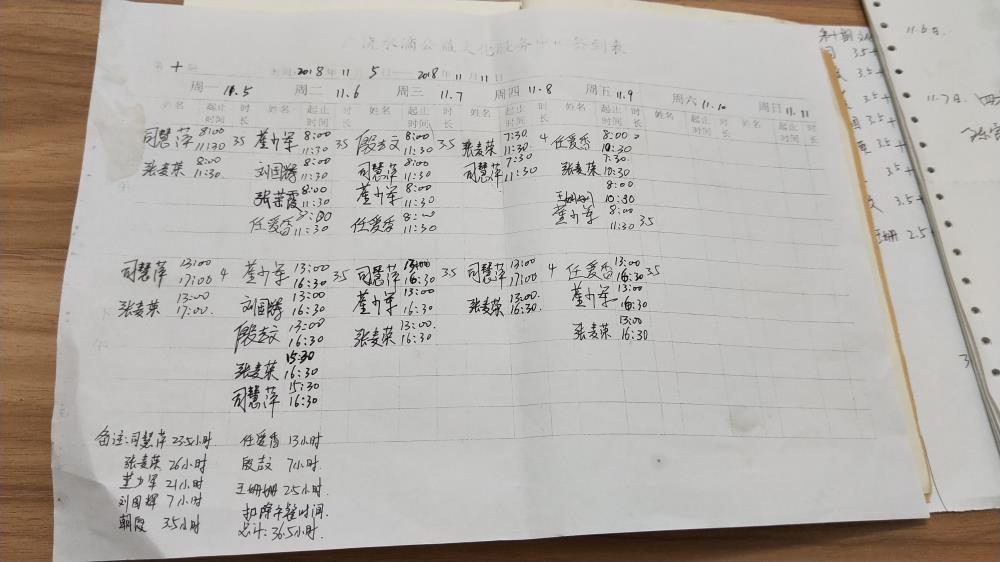 滴水公益文化服务中心签到表
第十期 时间 2018年11月5日——2018年11月11日
周一 11.5 周二 11.6 周三 11.7 周四 11.8 周五 11.9 周六 11.10 周日 11.11
姓名 起止时间 时长 姓名 起止时间 时长 姓名 起止时间 时长 姓名 起止时间 时长 姓名 起止时间 时长 姓名 起止时间 时长 姓名 起止时间 时长
司慧萍 8:00 11:30 3.5 董少军 8:00 11:30 3.5 殷志文 8:00 11:30 3.5 张麦荣 7:30 11:30 4 任爱香 8:00 10:30
张麦荣 8:00 11:30 刘国辉 8:00 11:30 司慧萍 8:00 11:30 司慧萍 7:30 11:30 张麦荣 7:30 10:30
张荣霞 8:00 11:30 董少军 8:00 11:30 王姗姗 8:00 10:30
任爱香 8:00 11:30 任爱香 8:00 11:30 董少军 8:00 11:30 3.5
司慧萍 13:00 17:00 4 董少军 13:00 16:30 3.5 司慧萍 13:00 16:30 3.5 司慧萍 13:00 17:00 4 任爱香 13:00 16:30 3.5
张麦荣 13:00 17:00 刘国辉 13:00 16:30 董少军 13:00 16:30 张麦荣 13:00 16:30 董少军 13:00 16:30
殷志文 13:00 16:30 张麦荣 13:00 16:30 张麦荣 13:00 16:30
张麦荣 15:30 16:30
司慧萍 15:30 16:30
备注:司慧萍 23.5小时 任爱香 13小时
张麦荣 26小时 殷志文 7小时
董少军 21小时 王姗姗 2.5小时
刘国辉 7小时 扣除午餐时间
朝霞 3.5小时 总计:36.5小时
第十期
3.5+
3.5+
3.5+
3.5+
3.5+
3.5+
王姗 2.5
11.6日
11.7日